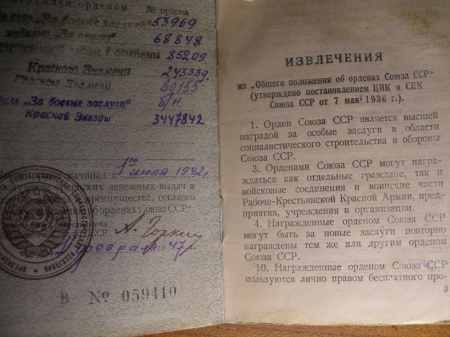 орденом № ордена
"За боевые заслуги" 53969
68848
85209
Красного Знамени 243339
Красного Знамени
"За боевые заслуги" б/н
Красной Звезды 3447842
1го июля 1942 г.
денежных выдач и
преимуществ, согласно
орденах Союза ССР"
А. Горкин
февраля 47
В № 059410
ИЗВЛЕЧЕНИЯ
из „Общего положения об орденах Союза ССР"
(утверждено постановлением ЦИК и СНК
Союза ССР от 7 мая 1936 г.).
1. Орден Союза ССР является высшей
наградой за особые заслуги в области
социалистического строительства и обороны
Союза ССР.
3. Орденами Союза ССР могут награ-
ждаться как отдельные граждане, так и
войсковые соединения и воинские части
Рабоче-Крестьянской Красной Армии, пред-
приятия, учреждения и организации.
4. Награжденные орденом Союза ССР
могут быть за новые заслуги повторно
награждены тем же или другим орденом
Союза ССР.
10. Награжденные орденом Союза ССР
пользуются лично правом бесплатного про-
3